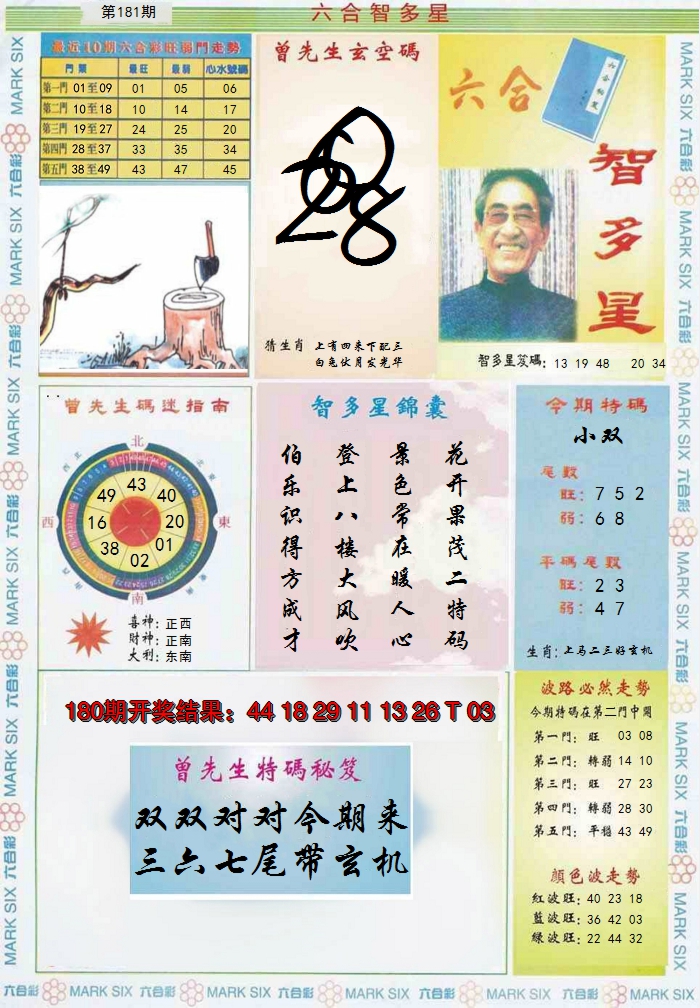 第181期
六合智多星
最近10期六合彩旺弱門走勢
門類 最旺 最弱 心水號碼
第一門 01至09 01 05 06
第二門 10至18 10 14 17
第三門 19至27 24 25 20
第四門 28至37 33 35 34
第五門 38至49 43 47 45
曾先生玄空碼
28
猜生肖 上有四来下配三
白兔伏月发光华
六合
智多星
智多星笈碼: 13 19 48 20 34
曾先生碼迷指南
北
東
南
西
43
40
20
01
02
38
16
49
喜神:正西
財神:正南
大利:东南
智多星錦囊
花开果茂二特码
景色常在暖人心
登上八楼大风吹
伯乐识得方成才
今期特碼
小双
尾數
旺:7 5 2
弱:6 8
平碼尾數
旺:2 3
弱:4 7
生肖:上马二三好玄机
180期开奖结果:44 18 29 11 13 26 T 03
曾先生特碼秘笈
双双对对今期来
三六七尾带玄机
波路必然走勢
今期特碼在第二門中開
第一門: 旺 03 08
第二門: 轉弱 14 10
第三門: 旺 27 23
第四門: 轉弱 28 30
第五門: 平穩 43 49
顏色波走勢
紅波旺: 40 23 18
藍波旺: 36 42 03
綠波旺: 22 44 32
六合彩 MARK SIX 六合彩 MARK SIX 六合彩 MARK SIX 六合彩 MARK SIX 六合彩